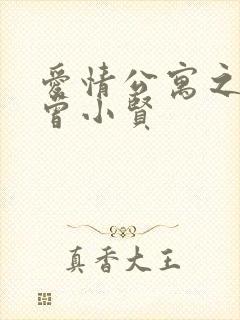 愛情公寓之
曾小賢
真香大王